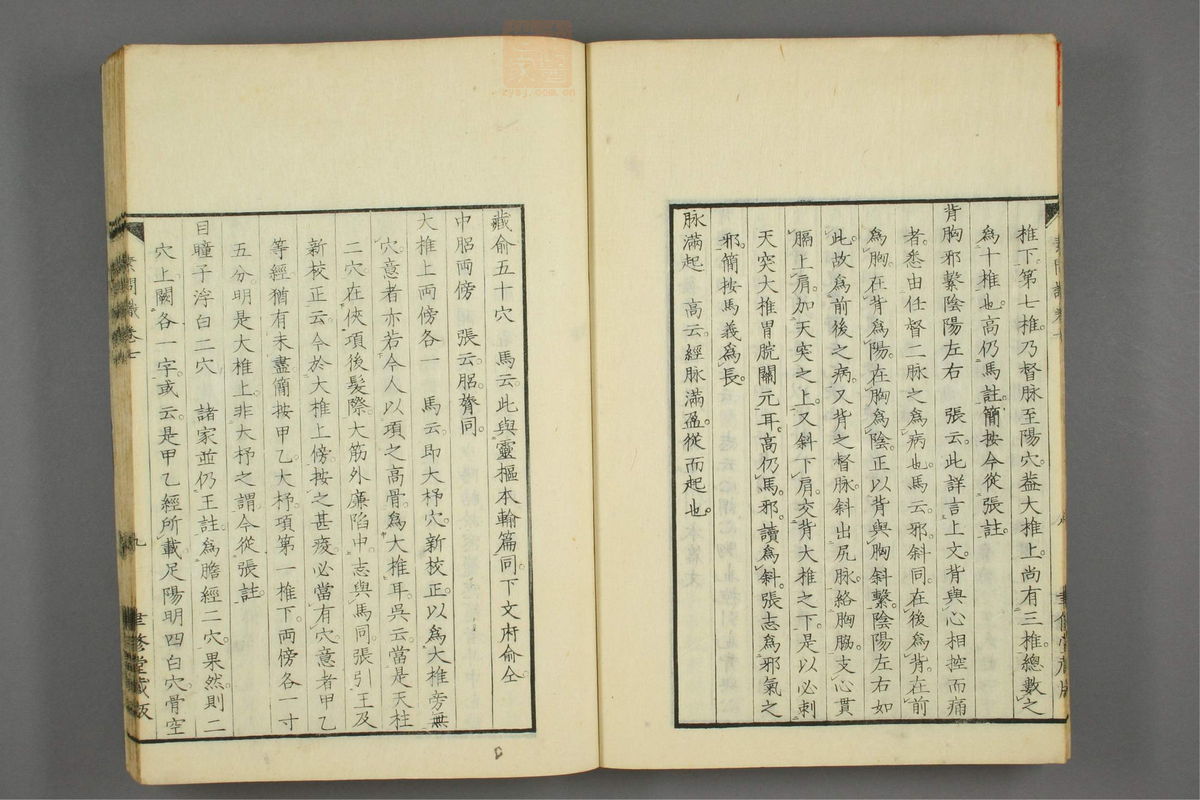 椎下第七椎乃督脉至陽穴蓋大椎上尚有三椎總數之
爲十椎也高仍馬註簡按今從張註
背胸邪繫陰陽左右　張云此詳言上文背與心相控而痛
者悉由任督二脉之爲病也馬云邪斜同在後爲背在前
爲胸在背爲陽在胸爲陰正以背與胸斜繫陰陽左右如
此故爲前後之病又背之督脉斜出尻脉絡胸脇支心貫
膈上肩加天突之上又斜下肩交背大椎之下是以必刺
天突大椎胃脘關元耳高仍馬邪讀爲斜張志爲邪氣之
邪簡按馬義爲長
脉滿起　高云經脉滿盈從而起也
藏俞五十穴　馬云此與靈樞本輸篇同下文府俞仝
中䏚兩傍　張云䏚膂同
大椎上兩傍各一　馬云即大杼穴新校正以爲大椎旁無
穴意者亦若今人以項之高骨爲大椎耳吳云當是天柱
二穴在俠項後髮際大筋外廉陷中志與馬同張引王及
新校正云今於大椎上傍按之甚痠必當有穴意者甲乙
等經猶有未盡簡按甲乙大杼項第一椎下兩傍各一寸
五分明是大椎上非大杼之謂今從張註
目瞳子浮白二穴　諸家並仍王註爲膽經二穴果然則二
穴上闕各一字或云是甲乙經所載足陽明四白穴骨空
素問識卷七
九
聿修堂藏版